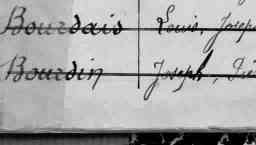 Bourdais Louis, Josep
Bourdin Joseph, Fré